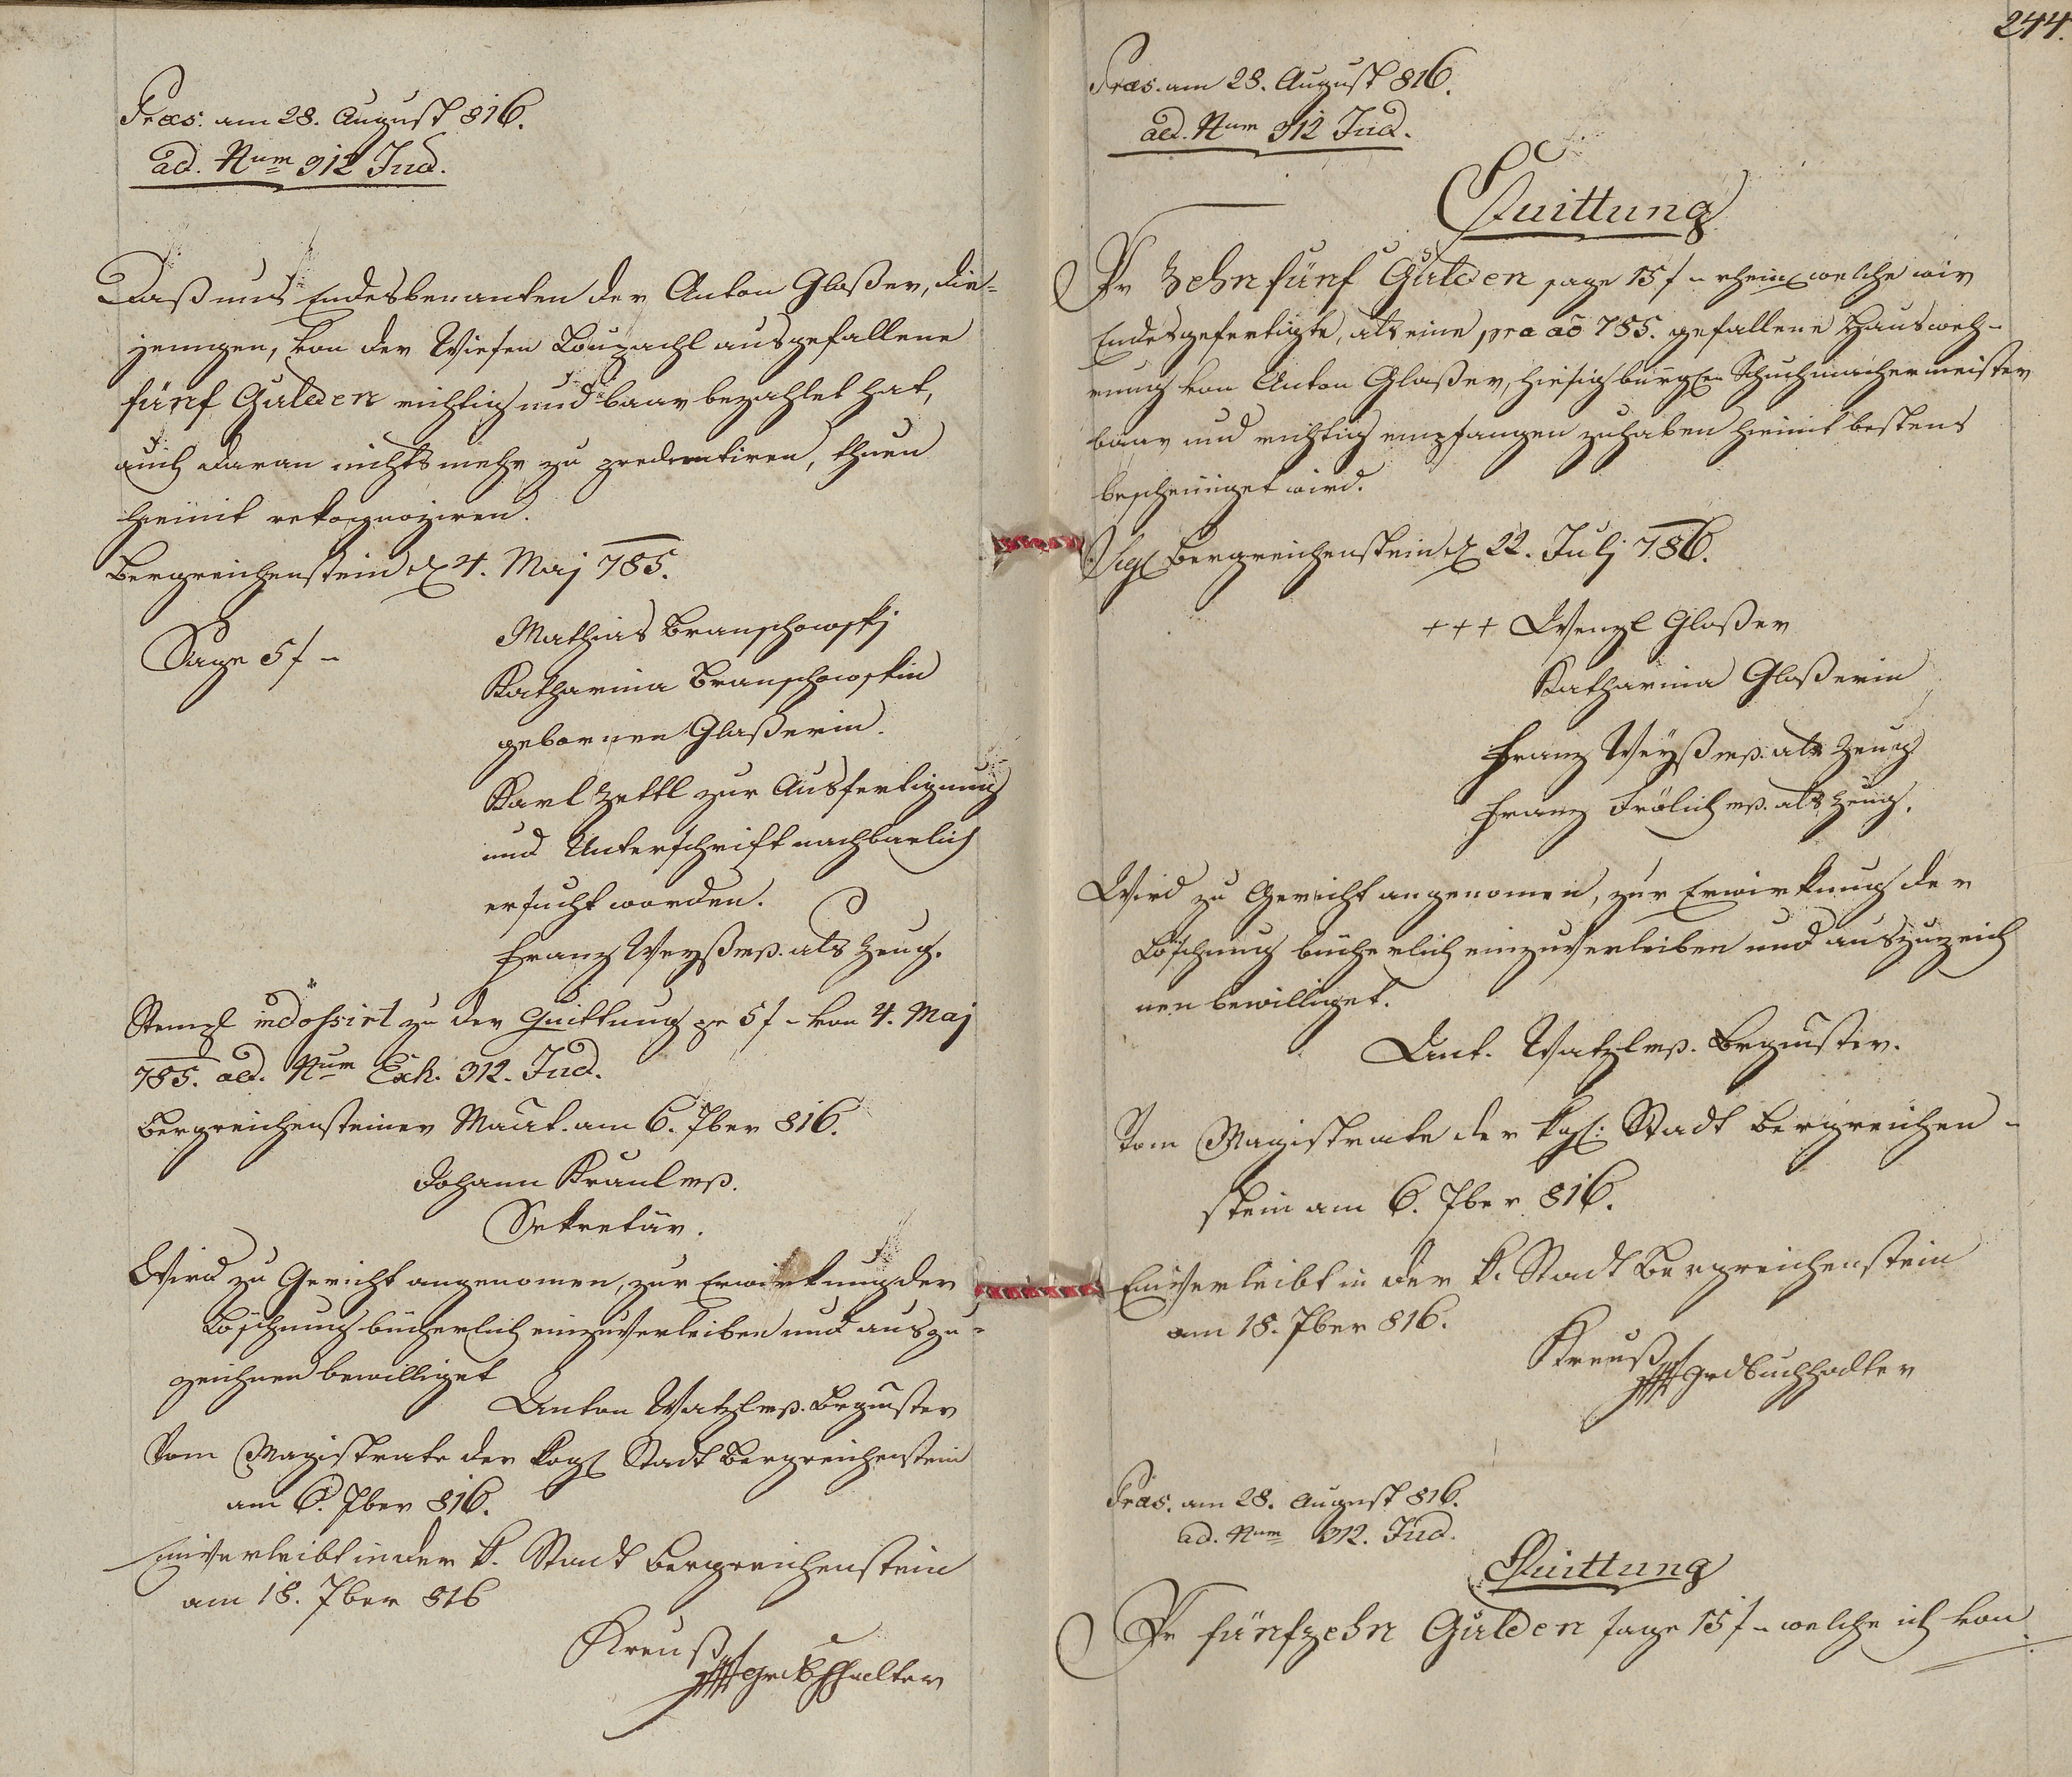 Præs. am 28. August 816.
ad. Num 912 Jud.
Daß uns Endesbenanten der Anton Glaßer, die-
jenigen, von der Wiesen ausgefallene
fünf Gulden richtig und baar bezahlet hat,
auch daran nichts mehr zu thuen
hiemit rekognoziren.
Bergreichenstein d. 4. Maj 785.
Sage 5 f -
Mathias Branschowskj
Katharina Branschowskin
gebornen Glaßerin.
Karl Zettl zur Ausfertigung
und Unterschrift nachbarlich
ersucht worden.
Franz Weyß mp. als Zeug.
Stempl indossirt zu der Quittung pr 5 f - von 4. Maj
785. ad. Num Exh. 912. Jud.
Bergreichensteiner Maut. am 6. 7ber 816.
Johann Kraul mp.
Sekretär.
Wird zu Gericht angenomen, zur Erwirkung der
Löschung bücherlich einzuverleiben und auszu-
zeichnen bewilliget
Anton Watzl mp. Brgmster
Vom Magistrate der kögl Stadt Bergreichenstein
am 6. 7ber 816.
Einverleibt in der k. Stadt Bergreichenstein
am 18. 7ber 816
Kreuß
244.
Præs. am 28. August 816.
ad. Num 912 Jud.
Quittung
Pr Zehn fünf Gulden sage 15 f - rheinl welche wir
Endesgefertigte, als eine pra ao 785. gefallene Hausweh-
rung von Anton Glaßer, hiesig bürgln Schuchmachermeister
baar und richtig empfangen zuhaben hiemit bestens
bescheiniget wird.
Sigl Bergreichenstein d 22. Julj 786.
+++ Wenzl Glaßer
Katharina Glaßerin
Franz Weyß mp. als Zeug
Franz Frölich mp. als Zeug.
Wird zu Gericht angenomen, zur Erwirkung der
Löschung bücherlich einzuverleiben und auszuzeich
nen bewilliget.
Ant. Watzl mp. Brgmster.
Vom Magistrate der kgl. Stadt Bergreichen-
stein am 6. 7ber 816.
Einverleibt in der k. Stadt Bergreichenstein
am 18. 7ber 816.
Kreuß
Grdbuchhalter
Præs. am 28. August 816.
ad. Num 912. Jud.
Quittung
Pr fünfzehn Gulden sage 15 f - welche ich von